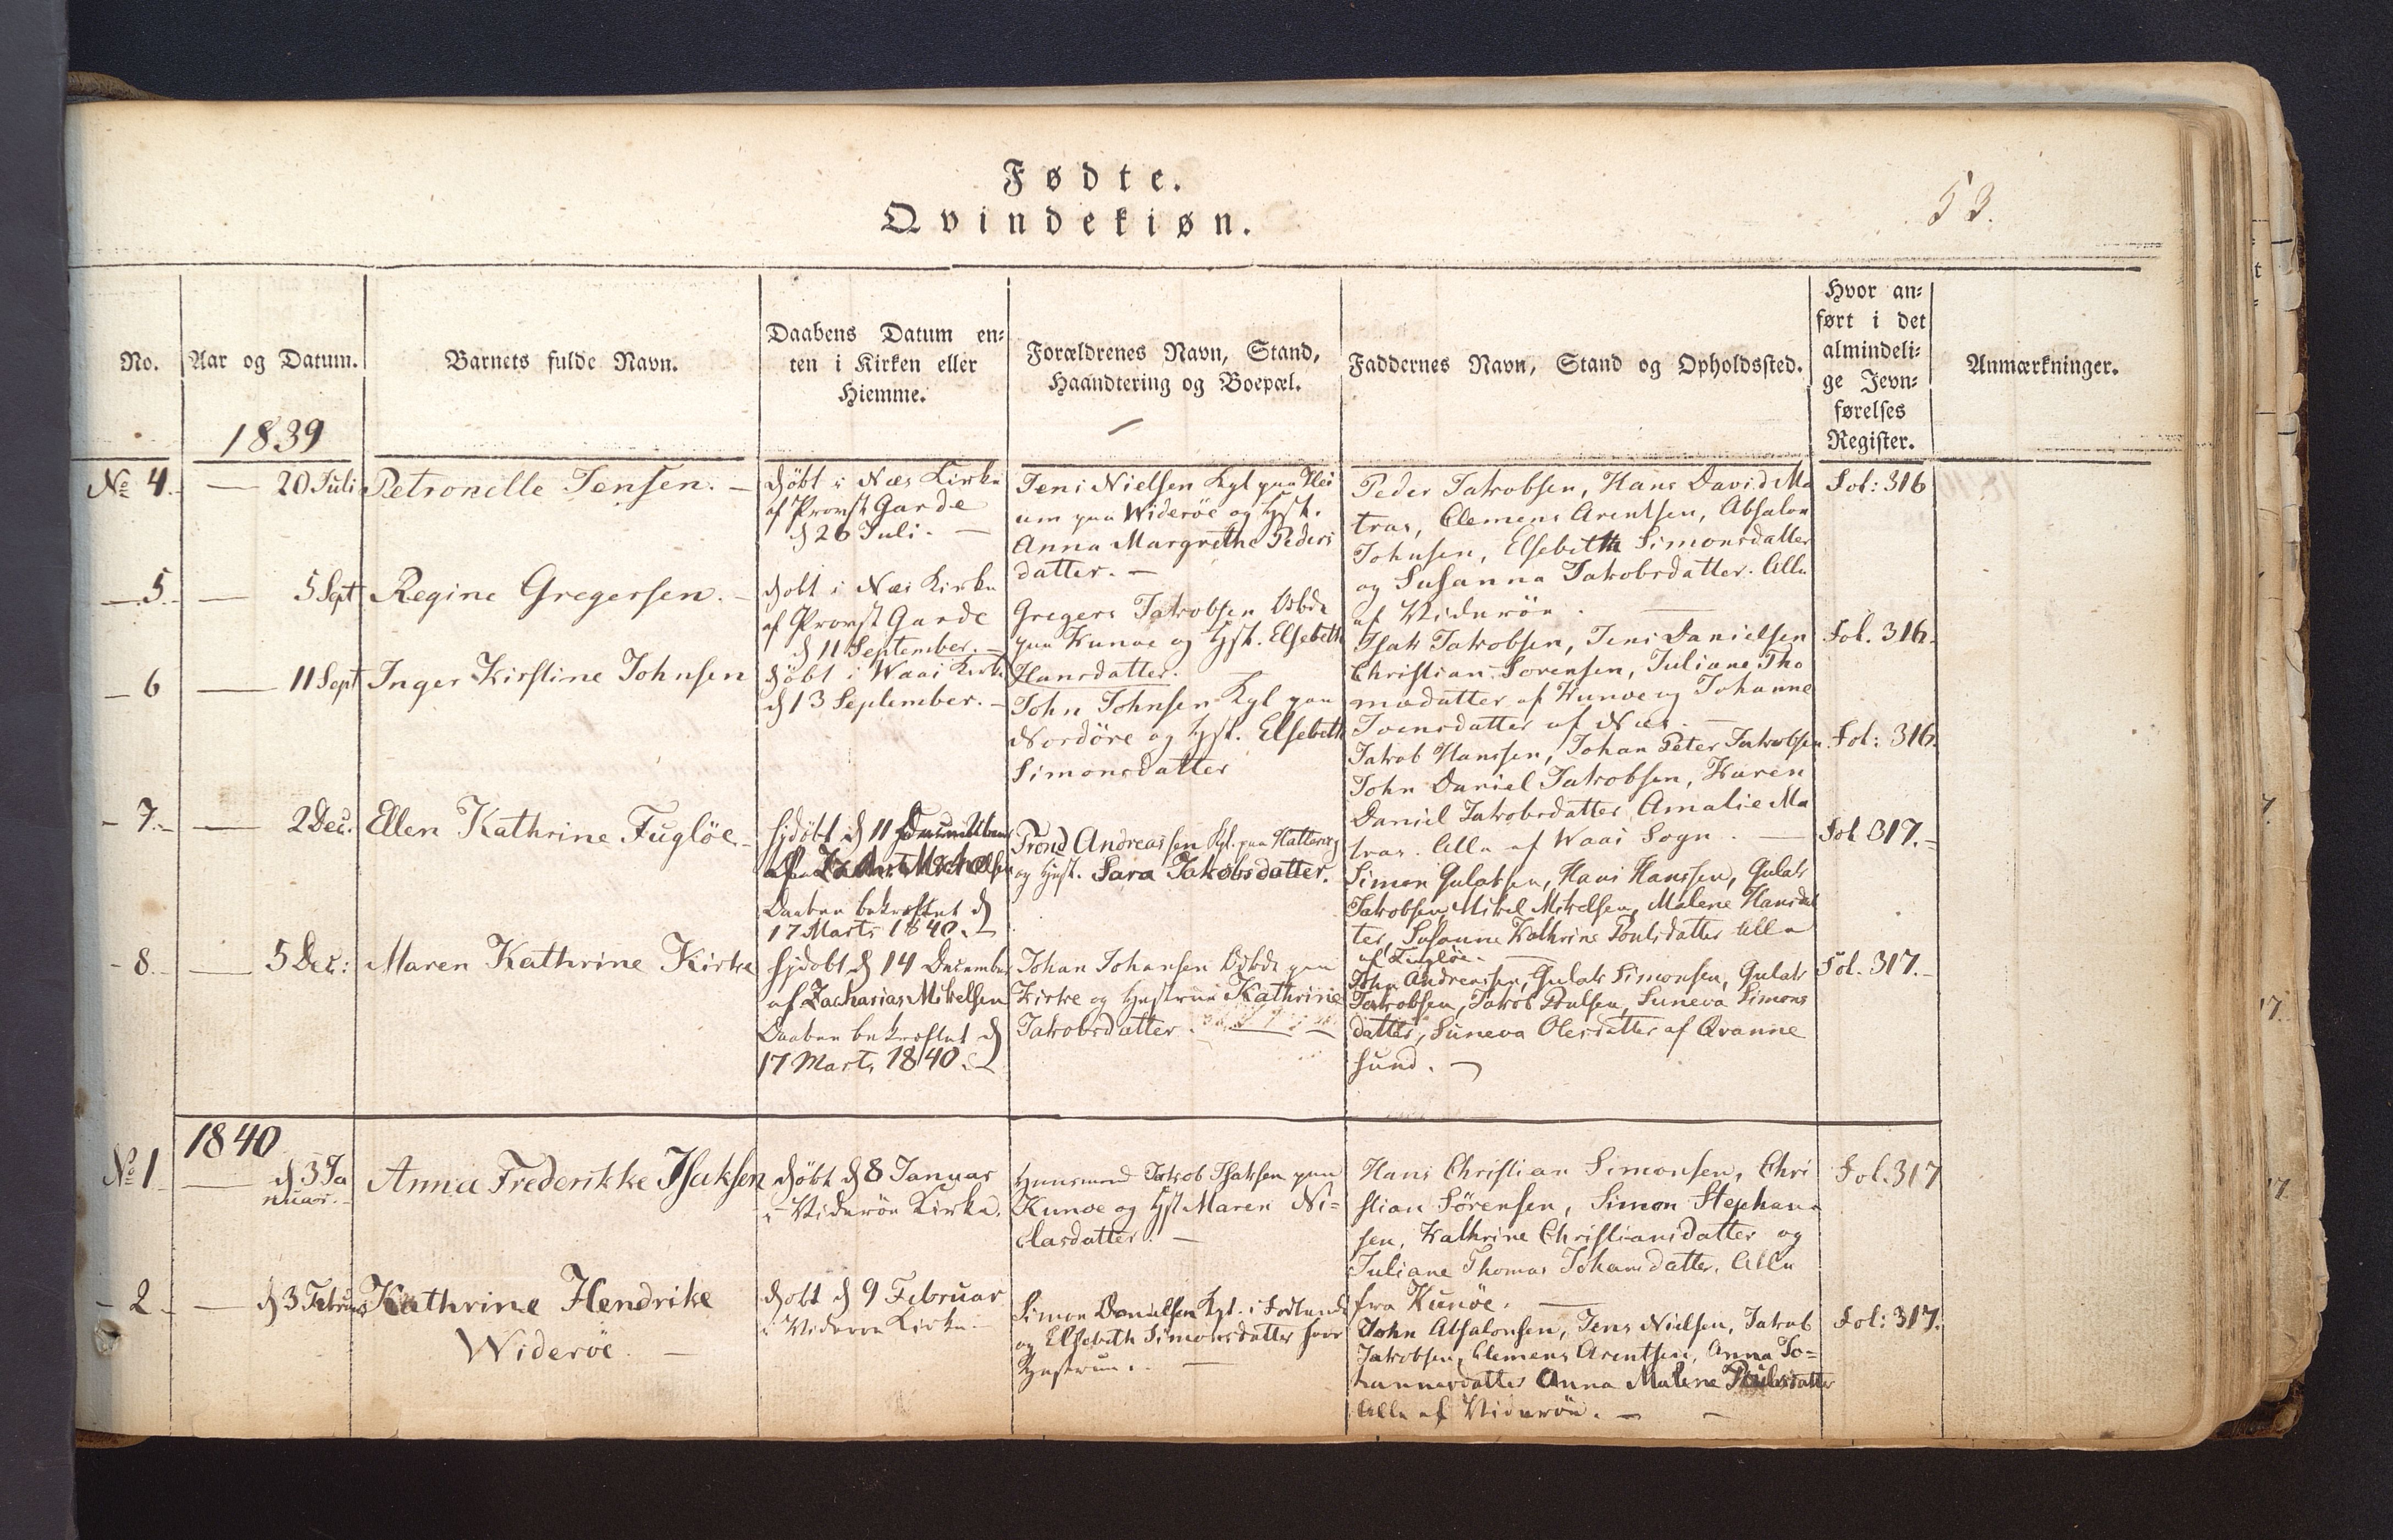 Fødte.
Qvindekiøn.
53.
No.
Aar og Datum.
Barnets fulde Navn.
Daabens Datum en-
ten i Kirken eller
Hiemme.
Forældrenes Navn, Stand,
Haandtering og Boepæl.
Faddernes Navn, Stand og Opholdssted.
Hvor an-
ført i det
almindeli-
ge Jevn-
førelses
Register.
Anmærkninger.
1839
№ 4.
— 20 Juli
Petronelle Jensen. —
døbt i Næs Kirke
af Provst Garde
d 26 Juli. —
Jens Nielsen Kgl paa
paa Wideröe og Hst.
Anna Margrethe Peders
datter. —
Peder Jakobsen, Hans David Ma
tras, Clemens Arentsen, Absalon
Johnsen, Elsebeth Simonsdatter
og Susanna Jakobsdatter. Alle
af Videröe.
Fol: 316
— 5. —
5 Sept
Regine Gregersen. —
døbt i Næs Kirke
af Provst Garde
d 11 September. —
Gregers Jakobsen
paa Kunoe og Hst. Elsebeth
Hansdatter.
Isak Jakobsen, Jens Danielsen
Christian Sørensen, Juliane Tho
masdatter af Kunoe og Johanne
Joensdatter af Næs. —
Fol. 316.
— 6
— 11 Sept
Inger Kirstine Johnsen
døbt i Waai Kirke
d 13 September. —
John Johnsen Kgl paa
Nordöre og Hst. Elsebeth
Simonsdatter
Jakob Hanssen, Johan Peter Jakobsen
John Daniel Jakobsen, Karen
Daniel Jakobsdatter, Amalie Ma
tras. Alle af Waai Sogn. —
Fol: 316.
— 7. —
— 2 Dec.
Ellen Kathrine Fuglöe. —
hjdöbt d 11 December
af
Daaben bekræftet d
17 Marts 1840.
Trond Andreassen Kgl. paa Hattervig
og Hust. Sara Jakobsdatter.
Simon Gulaksen, Hans Hanssen, Gulak
Jakobsen, Mikel Mikelsen, Malene Hansdat
ter, Susanne Kathrine Poulsdatter Alle
af Fuglöe.
Fol 317. —
— 8. —
— 5 Dec:
Maren Kathrine Kirke
hjdøbt d 14 December
af Zacharias Mikelsen
Daaben bekræftet d
17 Marts 1840.
Johan Johansen paa
Kirke og Hustrue Kathrine
Jakobsdatter
John Andreassen, Gulak Simonsen, Gulak
Jakobsen, Jakob Poulsen, Suneva Simons
datter, Suneva Olesdatter af Qvanne
sund. —
Fol. 317. —
1840
№ 1
— d 3 Ja
nuar. —
Anna Frederikke Isaksen
døbt d 8 Januar
i Videröe Kirke.
Huusmand Jakob Isaksen paa
Kunoe og Hst Maren Ni=
clasdatter. —
Hans Christian Simonsen, Chri
stian Sörensen, Simon Stephan
sen, Kathrine Christiansdatter og
Juliane Thomas Johansdatter. Alle
fra Kunöe. —
Fol. 317
— 2 —
— d 3 Februar
Kathrine Hendrike
Wideröe. —
døbt d 9 Februar
i Videroe Kirke. —
Simon Danielsen Kgl. i
og Elsebeth Simonsdatter hans
Hustrue. —
John Absalonsen, Jens Nielsen, Jakob
Jakobsen, Clemens Arentsen, Anna Jo=
hannesdatter Anna Malene Poulsdatter
Alle af Viderøe. —
Fol: 317.